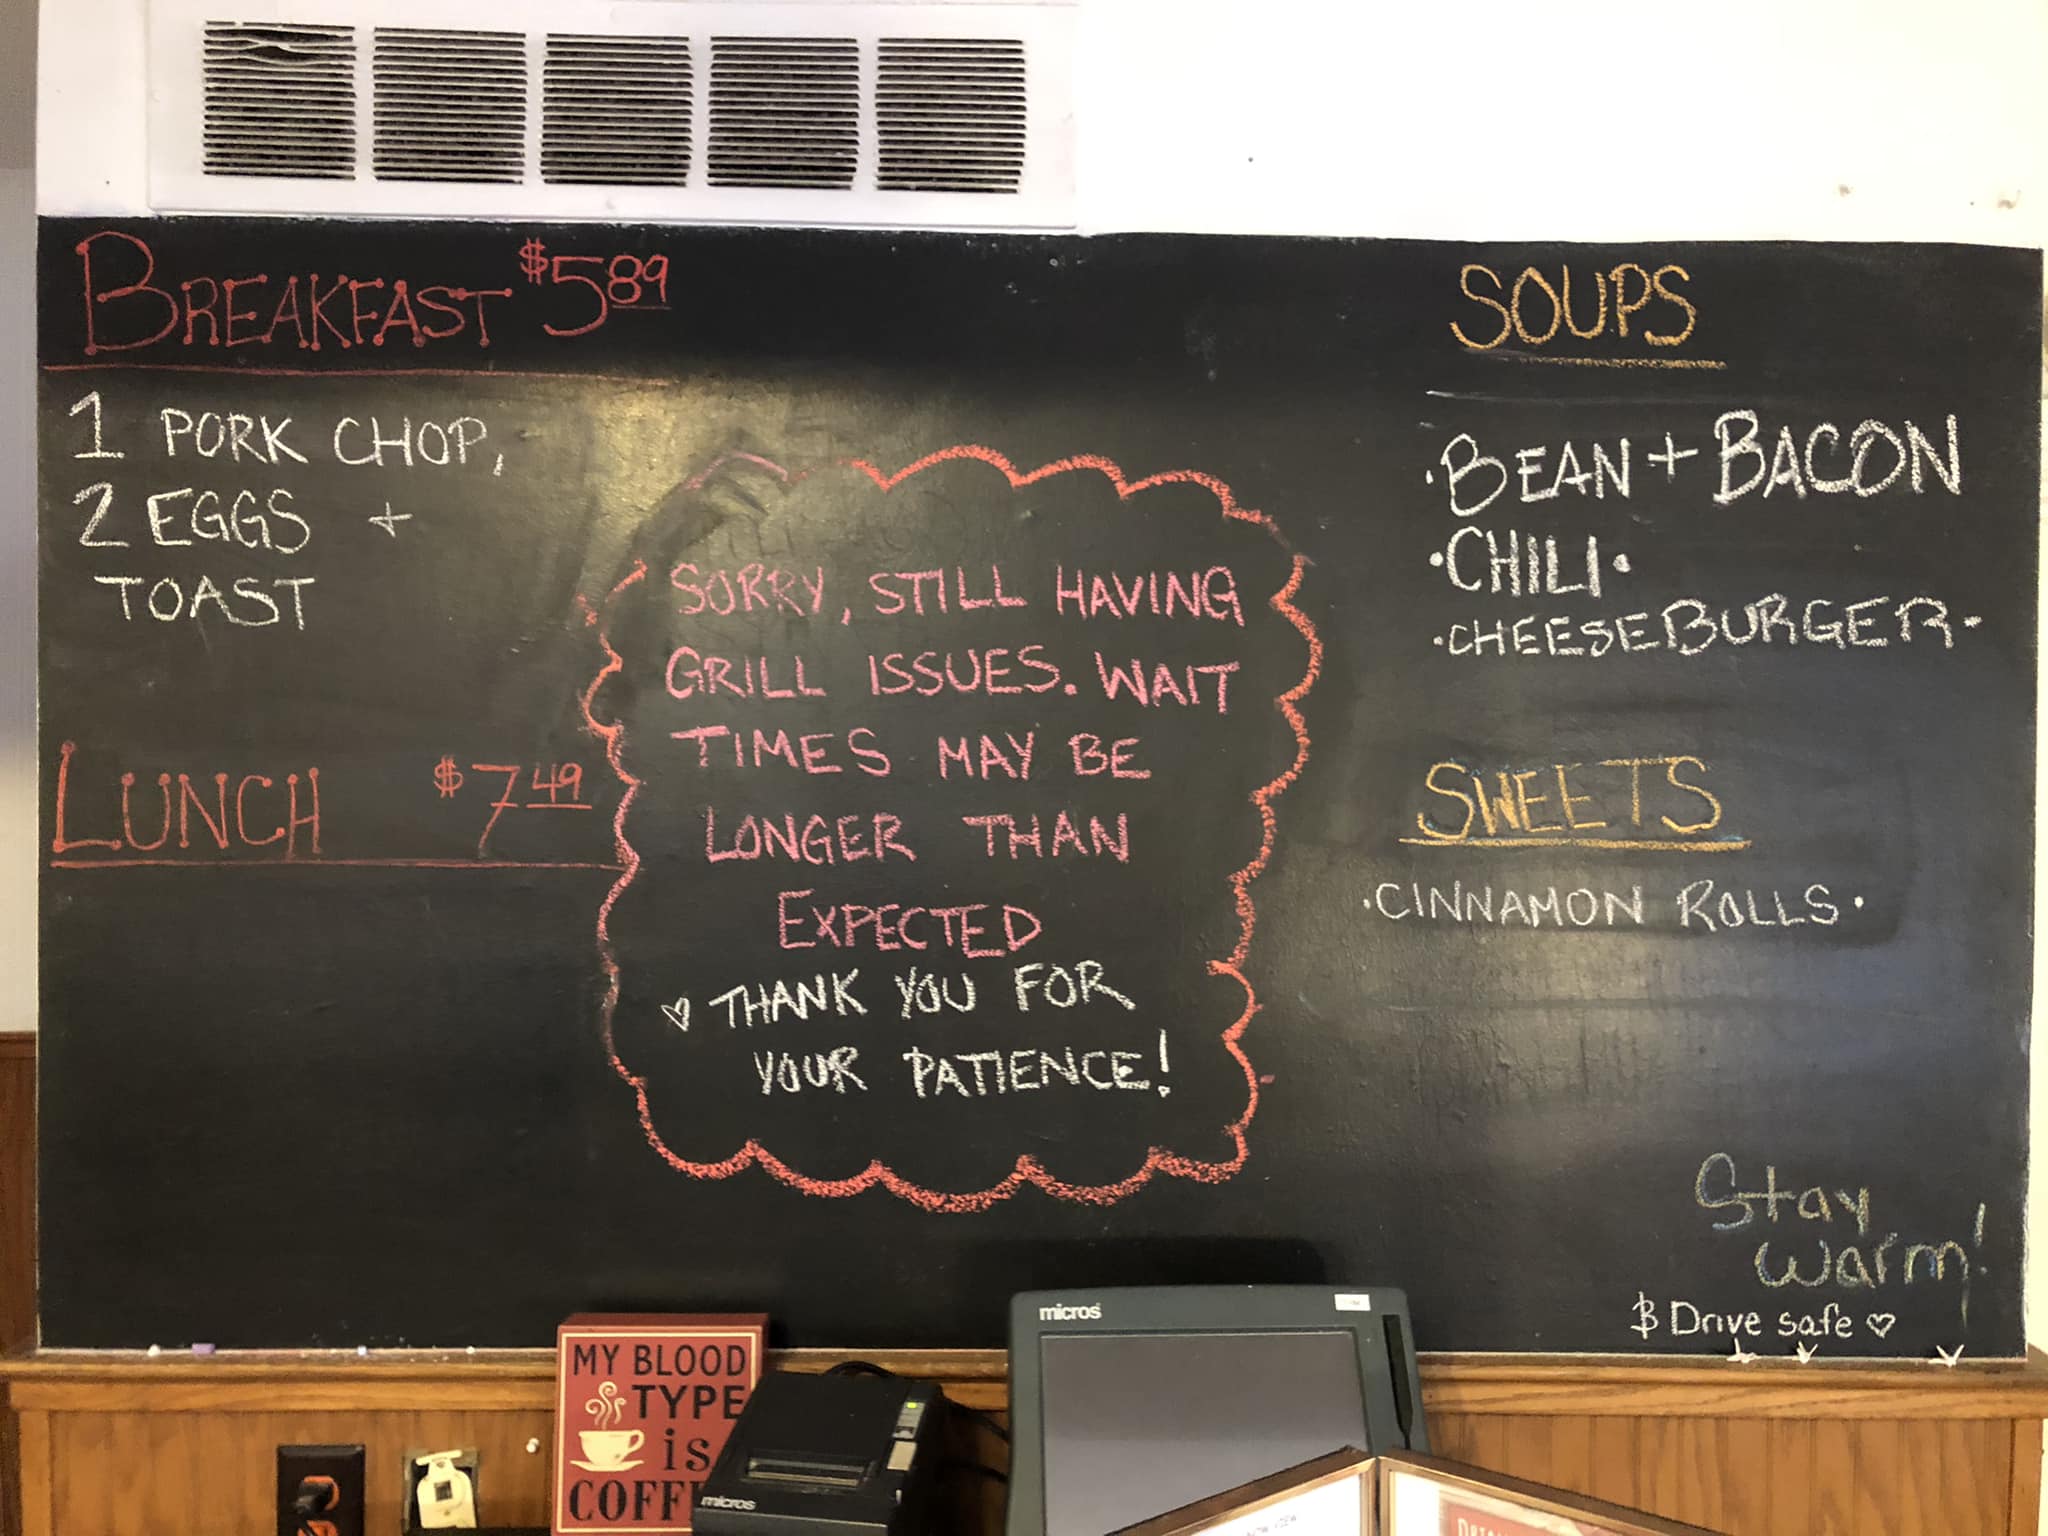 BREAKFAST $5 89
1 PORK CHOP,
2 EGGS +
TOAST
LUNCH $7 49
SORRY, STILL HAVING
GRILL ISSUES. WAIT
TIMES MAY BE
LONGER THAN
EXPECTED
♡ THANK YOU FOR
YOUR PATIENCE!
SOUPS
·BEAN + BACON
·CHILI·
·CHEESEBURGER·
SWEETS
·CINNAMON ROLLS·
Stay
warm!
& Drive safe ♡
MY BLOOD
TYPE
is
COFF
micros
micros